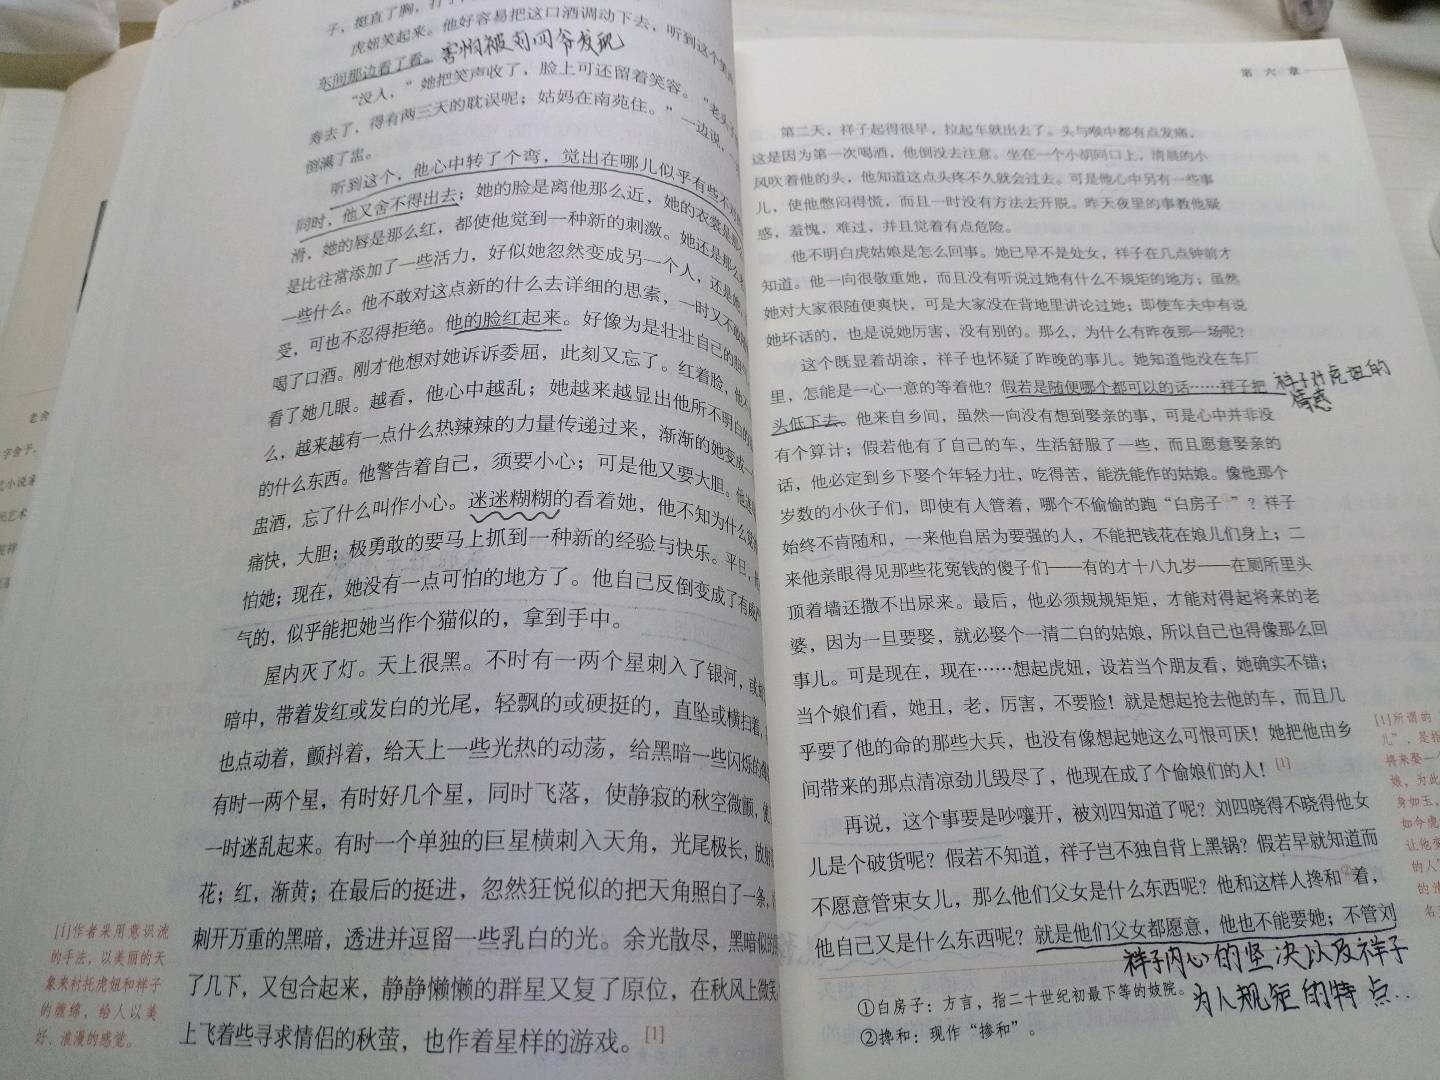 子，挺直了胸，打了
虎妞笑起来。他好容易把这口酒调动下去，听到这个笑
东间那边看了看。害怕被刘四爷发现
“没人，”她把笑声收了，脸上可还留着笑容。“老头
寿去了，得有两三天的耽误呢；姑妈在南苑住。”一边说，
倒满了盅。
听到这个，他心中转了个弯，觉出在哪儿似乎有些不
同时，他又舍不得出去；她的脸是离他那么近，她的衣裳是那么
滑，她的唇是那么红，都使他觉到一种新的刺激。她还是那么
是比往常添加了一些活力，好似她忽然变成另一个人，还是她，
一些什么。他不敢对这点新的什么去详细的思索，一时又不敢
受，可也不忍得拒绝。他的脸红起来。好像为是壮壮自己的胆
喝了口酒。刚才他想对她诉诉委屈，此刻又忘了。红着脸，他
看了她几眼。越看，他心中越乱；她越来越显出他所不明白的
么，越来越有一点什么热辣辣的力量传递过来，渐渐的她变成一
的什么东西。他警告着自己，须要小心；可是他又要大胆。他
盅酒，忘了什么叫作小心。迷迷糊糊的看着她，他不知为什么觉
痛快，大胆；极勇敢的要马上抓到一种新的经验与快乐。平日，
怕她；现在，她没有一点可怕的地方了。他自己反倒变成了有威
气的，似乎能把她当作个猫似的，拿到手中。
屋内灭了灯。天上很黑。不时有一两个星刺入了银河，或
暗中，带着发红或发白的光尾，轻飘的或硬挺的，直坠或横扫着，
也点动着，颤抖着，给天上一些光热的动荡，给黑暗一些闪烁的
有时一两个星，有时好几个星，同时飞落，使静寂的秋空微颤，使
一时迷乱起来。有时一个单独的巨星横刺入天角，光尾极长，放射
花；红，渐黄；在最后的挺进，忽然狂悦似的把天角照白了一条，
刺开万重的黑暗，透进并逗留一些乳白的光。余光散尽，黑暗似的
了几下，又包合起来，静静懒懒的群星又复了原位，在秋风上微笑
上飞着些寻求情侣的秋萤，也作着星样的游戏。[1]
[1]作者采用意识流
的手法，以美丽的天
象来衬托虎妞和祥子
的缠绵，给人以美
好、浪漫的感觉。
老舍
字舍予，
第六章
第二天，祥子起得很早，拉起车就出去了。头与喉中都有点发痛，
这是因为第一次喝酒，他倒没去注意。坐在一个小胡同口上，清晨的小
风吹着他的头，他知道这点头疼不久就会过去。可是他心中另有一些事
儿，使他憋闷得慌，而且一时没有方法去开脱。昨天夜里的事教他疑
惑，羞愧，难过，并且觉着有点危险。
他不明白虎姑娘是怎么回事。她已早不是处女，祥子在几点钟前才
知道。他一向很敬重她，而且没有听说过她有什么不规矩的地方；虽然
她对大家很随便爽快，可是大家没在背地里讲论过她；即使车夫中有说
她坏话的，也是说她厉害，没有别的。那么，为什么有昨夜那一场呢？
这个既显着胡涂，祥子也怀疑了昨晚的事儿。她知道他没在车厂
里，怎能是一心一意的等着他？假若是随便哪个都可以的话……祥子把
祥子对虎妞的
情感
头低下去。他来自乡间，虽然一向没有想到娶亲的事，可是心中并非没
有个算计；假若他有了自己的车，生活舒服了一些，而且愿意娶亲的
话，他必定到乡下娶个年轻力壮，吃得苦，能洗能作的姑娘。像他那个
岁数的小伙子们，即使有人管着，哪个不偷偷的跑“白房子①”？祥子
始终不肯随和，一来他自居为要强的人，不能把钱花在娘儿们身上；二
来他亲眼得见那些花冤钱的傻子们——有的才十八九岁——在厕所里头
顶着墙还撒不出尿来。最后，他必须规规矩矩，才能对得起将来的老
婆，因为一旦要娶，就必娶个一清二白的姑娘，所以自己也得像那么回
事儿。可是现在，现在……想起虎妞，设若当个朋友看，她确实不错；
当个娘们看，她丑，老，厉害，不要脸！就是想起抢去他的车，而且几
乎要了他的命的那些大兵，也没有像想起她这么可恨可厌！她把他由乡
间带来的那点清凉劲儿毁尽了，他现在成了个偷娘们的人！[1]
再说，这个事要是吵嚷开，被刘四知道了呢？刘四晓得不晓得他女
儿是个破货呢？假若不知道，祥子岂不独自背上黑锅？假若早就知道而
不愿意管束女儿，那么他们父女是什么东西呢？他和这样人搀和②着，
他自己又是什么东西呢？就是他们父女都愿意，他也不能要她；不管刘
祥子内心的坚决以及祥子
为人规矩的特点..
①白房子：方言，指二十世纪初最下等的妓院。
②搀和：现作“掺和”。
[1]所谓的
儿”，是指
将来娶一
娘，为此
身如玉，
如今虎
让他变
的人”
的清